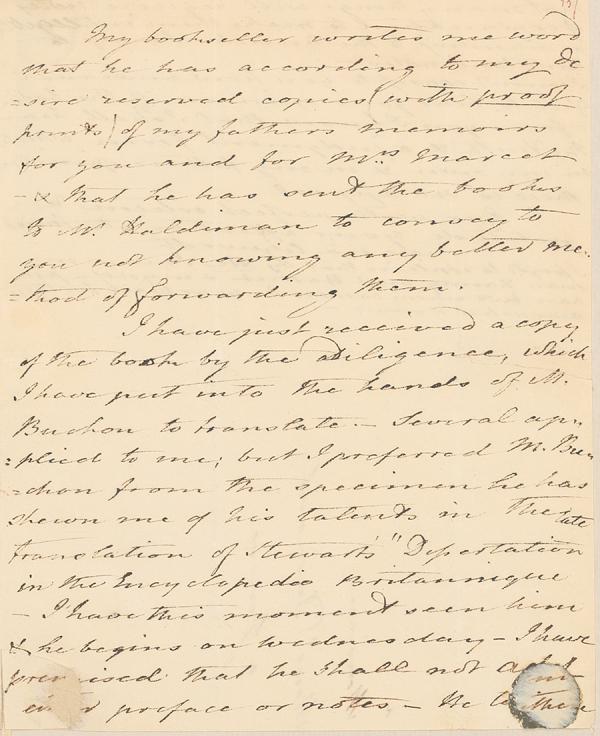 My bookseller writes me word
that he has according to my de
=sire reserved copies (with proof
prints) of my fathers memoirs
for you and for Mrs Marcet
- & that he has sent the books
to Mr Haldiman to convey to
you not knowing any better me-
=thod of forwarding them.
I have just received a copy
of the book by the diligence, which
I have put into the hands of M.
Buchon to translate. - Several ap-
=plied to me; but I preferred M. Bu-
=chon from the specimen he has
shewn me of his talents in the late
translation of Stewart's " Dissertation
in the Encyclopedie Britannique
- I have this moment seen him
& he begins on wednesday - I have
promised that he shall not add
preface or notes - He